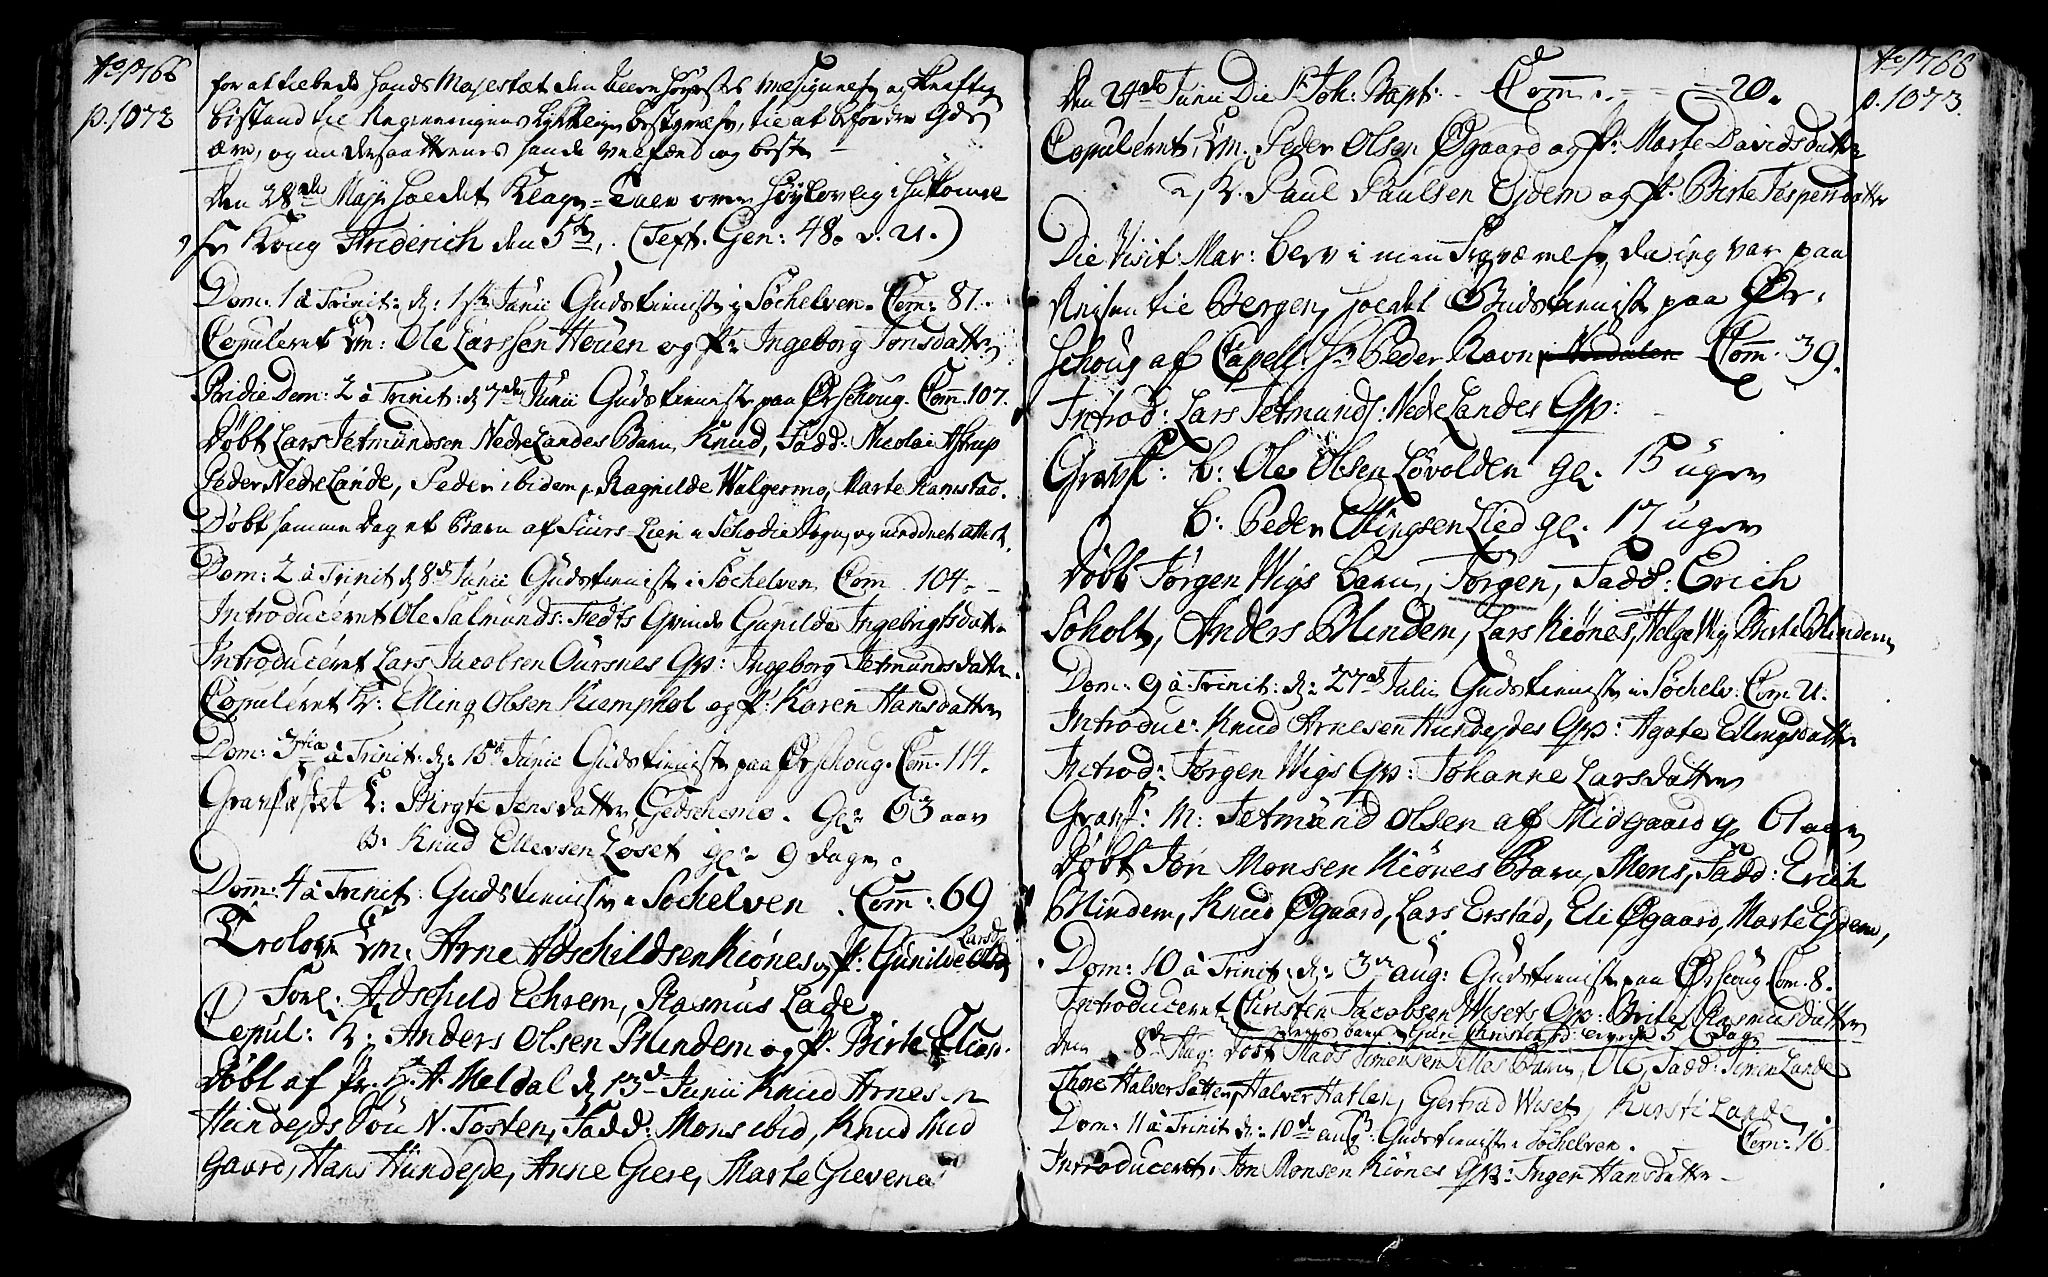 Ao 1766
p. 1072
for at udbede hands Majestæt den allerhøyestes Velsignelse og Kraftig
bistand til Regieringens Lykkelige bestyrelse, til at befordre Gds
ære, og undersaatternes sande Velfærd og beste
Den 28de Maji holdet Klage-Taler over Høylovlig i hukommelse
Kong Friderich den 5te, (Text. Gen: 48. v. 21.)
Dom: 1 à Trinit: d: 1ste Junii Gudstieniste i Søchelven. Com: 87.
Copuleret Em: Ole Larssen Houen og P: Ingeborg Jonsdatter
Pridie Dom: 2 à Trinit: d 7de Junii Gudstieniste paa Ørschoug. Com. 107.
Døbt Lars Jetmundsen Nedre Landes Barn Knud, Fadd: Nicolai Astrup
Peder Nedre Lande, Peder ibidem, Ragnilde Walgermo, Marte Ramstad.
Døbt samme dag et Barn af Siurs-Lien i Schodie Sogn, og anordnet attest.
Dom: 2 à Trinit d 8de Junii Gudstieniste i Søchelven Com 104.
Introduceret Ole Salmunds: Fedts Qvinde Gunilde Ingebrigtsdatter
Introduceret Lars Jacobsen Aursnes Qv: Ingeborg Jetmundsdatter
Copuleret K: Elling Olsen Kiemphol og P: Karen Hansdatter
Dom: 3tia à Trinit: d: 15de Junii Gudstieniste paa Ørschoug. Com. 114.
Gravfæstet K: Birgte Jensdatter Giedschemo. Gl: 63 aar
B. Knud Ellevsen Løset gl: 9 dage
Dom: 4 à Trinit: Gudstieniste i Søchelven. Com: 69
Trolov: Em: Arne Adschildsen Kiønes og P: Gunilde Larsd:
Forl: Adschild Echrem, Rasmus Lade
Copul: K: Anders Olsen Blindem og P. Birte Elias
Døbt af Hr. H. A. Meldal d 13de Junii Knud Arnesen
Hundejds Søn N. Tosten, Fadd: Mons ibid, Knud Mid
gaard, Hans Hundeje, Anne Giere, Marte Gievene
Ao 1766
p. 1073.
Den 24de Junii Die St Joh: Bapt: Com: 20.
Copuleret, Em. Peder Olsen Øgaard og P: Marte Davidsdatter
K. Paul Paulsen Ejdem og P. Birte Jespersdatter
Die Visit: Mar: blev i min Fraværelse, da ieg var paa
Reisen til Bergen, holdet Gudstieniste paa Ør-
schoug af Capell: Hr Peder Ravn Com. 39.
Introd: Lars Jetmunds: Nedre Landes Qv:
Gravf: b: Ole Olsen Løvolden gl. 15 uger
b: Peder Ellingsen Lied gl. 17 uger
Døbt Jørgen Wigs barn, Jørgen, Fadd: Erich
Søholt, Anders Blindem, Lars Kiønes, Helge Wig, Birte Blindem
Dom: 9 à Trinit: d: 27de Julii Gudstieniste i Søchelv. Com 21.
Introduc: Knud Arnesen Hundejdes Qv: Agate Ellingsdatter
Introd: Jørgen Wigs Qv: Johanne Larsdatter
Gravf: M: Jetmund Olsen af Midgaard gl 61 aar
Døbt Jon Monsen Kiønes Barn, Mons, Fadd: Erich
Blindem, Knud Øgaard, Lars Erstad, Eli Øgaard, Marte Ejdem,
Dom: 10 à Trinit: d: 3de aug: Gudstieniste paa Ørscoug Com. 8.
Introduceret Christen Jacobsen Wisets Qv: Brite Rasmusdatter
barn Guri Christensd: 5 dage
den 8de Aug: døbt Mads Simensen barn, Ole, Fadd: Simen Lande
Thore Halversætter, Halver Hatlen, Gertrud Wiset, Kirsti Lande
Dom: 11 à Trinit d: 10de aug: Gudstieniste i Søchelven. Com: 16
Introduceret. Jon Monsen Kiønes Qv: Inger Hansdatter